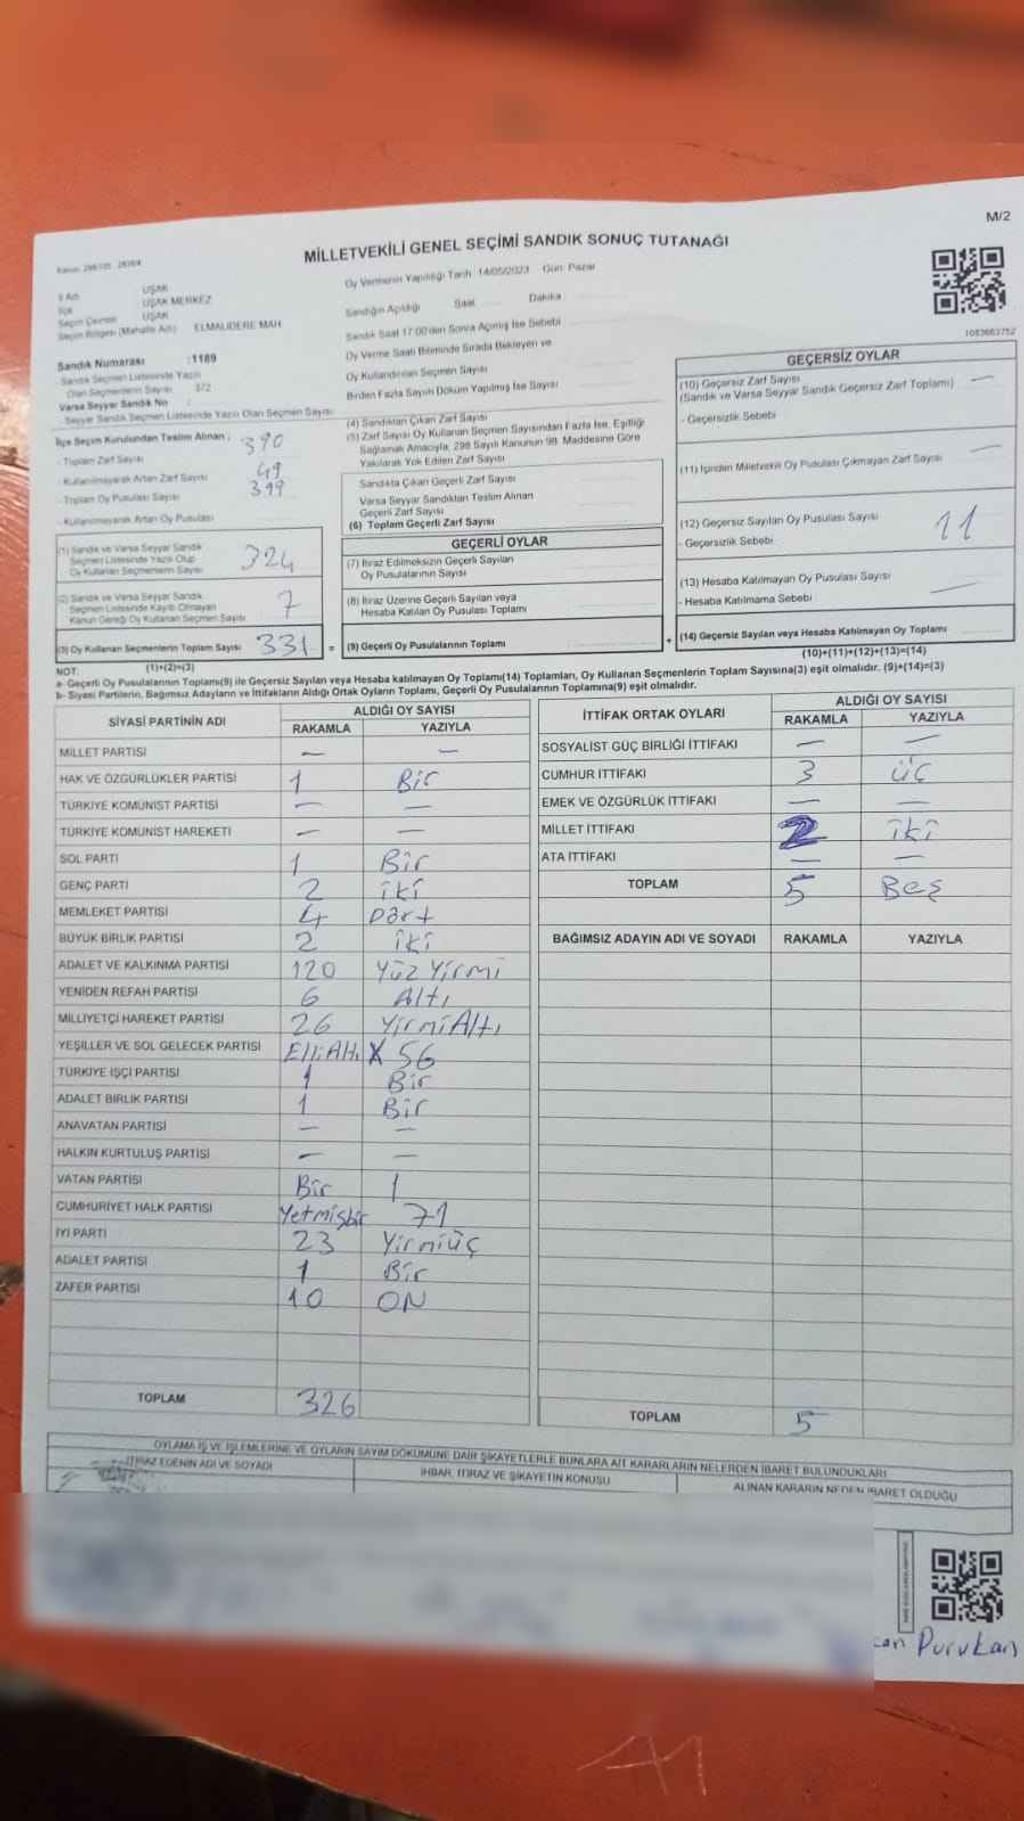 M/2
MİLLETVEKİLİ GENEL SEÇİMİ SANDIK SONUÇ TUTANAĞI
İl Adı UŞAK
İlçe UŞAK MERKEZ
Seçim Çevresi UŞAK
Seçim Bölgesi (Mahalle Adı) ELMALIDERE MAH
Sandık Numarası :1189
Sandık Seçmen Listesinde Yazılı
Olan Seçmenlerin Sayısı 372
Varsa Seyyar Sandık No :
Seyyar Sandık Seçmen Listesinde Yazılı Olan Seçmen Sayısı
Oy Vermenin Yapıldığı Tarih 14/05/2023 Gün: Pazar
Sandığın Açıldığı Saat Dakika
Sandık Saat 17:00'den Sonra Açılmış İse Sebebi
Oy Verme Saati Bitiminde Sırada Bekleyen ve
Oy Kullandırılan Seçmen Sayısı
Birden Fazla Sayım Döküm Yapılmış İse Sayısı
1083663752
İlçe Seçim Kurulundan Teslim Alınan :
- Toplam Zarf Sayısı 390
- Kullanılmayarak Artan Zarf Sayısı 49
- Toplam Oy Pusulası Sayısı 399
- Kullanılmayarak Artan Oy Pusulası
(1) Sandık ve Varsa Seyyar Sandık
Seçmen Listesinde Yazılı Olup
Oy Kullanan Seçmenlerin Sayısı 324
(2) Sandık ve Varsa Seyyar Sandık
Seçmen Listesinde Kayıtlı Olmayan
Kanun Gereği Oy Kullanan Seçmen Sayısı 7
(3) Oy Kullanan Seçmenlerin Toplam Sayısı 331 =
(1)+(2)=(3)
(4) Sandıktan Çıkan Zarf Sayısı
(5) Zarf Sayısı Oy Kullanan Seçmen Sayısından Fazla İse, Eşitliği
Sağlamak Amacıyla, 298 Sayılı Kanunun 98. Maddesine Göre
Yakılarak Yok Edilen Zarf Sayısı
Sandıkta Çıkan Geçerli Zarf Sayısı
Varsa Seyyar Sandıktan Teslim Alınan
Geçerli Zarf Sayısı
(6) Toplam Geçerli Zarf Sayısı
GEÇERLİ OYLAR
(7) İtiraz Edilmeksizin Geçerli Sayılan
Oy Pusulalarının Sayısı
(8) İtiraz Üzerine Geçerli Sayılan veya
Hesaba Katılan Oy Pusulası Toplamı
(9) Geçerli Oy Pusulalarının Toplamı +
GEÇERSİZ OYLAR
(10) Geçersiz Zarf Sayısı —
(Sandık ve Varsa Seyyar Sandık Geçersiz Zarf Toplamı)
- Geçersizlik Sebebi
(11) İçinden Milletvekili Oy Pusulası Çıkmayan Zarf Sayısı —
(12) Geçersiz Sayılan Oy Pusulası Sayısı 11
- Geçersizlik Sebebi
(13) Hesaba Katılmayan Oy Pusulası Sayısı —
- Hesaba Katılmama Sebebi
(14) Geçersiz Sayılan veya Hesaba Katılmayan Oy Toplamı
(10)+(11)+(12)+(13)=(14)
NOT:
a- Geçerli Oy Pusulalarının Toplamı(9) ile Geçersiz Sayılan veya Hesaba katılmayan Oy Toplamı(14) Toplamları, Oy Kullanan Seçmenlerin Toplam Sayısına(3) eşit olmalıdır. (9)+(14)=(3)
b- Siyasi Partilerin, Bağımsız Adayların ve İttifakların Aldığı Ortak Oyların Toplamı, Geçerli Oy Pusulalarının Toplamına(9) eşit olmalıdır.
SİYASİ PARTİNİN ADI ALDIĞI OY SAYISI
RAKAMLA YAZIYLA
MİLLET PARTİSİ — —
HAK VE ÖZGÜRLÜKLER PARTİSİ 1 Bir
TÜRKİYE KOMÜNİST PARTİSİ — —
TÜRKİYE KOMÜNİST HAREKETİ — —
SOL PARTİ 1 Bir
GENÇ PARTİ 2 iki
MEMLEKET PARTİSİ 4 Dört
BÜYÜK BİRLİK PARTİSİ 2 iki
ADALET VE KALKINMA PARTİSİ 120 Yüz Yirmi
YENİDEN REFAH PARTİSİ 6 Altı
MİLLİYETÇİ HAREKET PARTİSİ 26 YirmiAltı
YEŞİLLER VE SOL GELECEK PARTİSİ ElliAltı X 56
TÜRKİYE İŞÇİ PARTİSİ 1 Bir
ADALET BİRLİK PARTİSİ 1 Bir
ANAVATAN PARTİSİ — —
HALKIN KURTULUŞ PARTİSİ — —
VATAN PARTİSİ Bir 1
CUMHURİYET HALK PARTİSİ Yetmişbir 71
İYİ PARTİ 23 Yirmiüç
ADALET PARTİSİ 1 Bir
ZAFER PARTİSİ 10 ON
TOPLAM 326
İTTİFAK ORTAK OYLARI ALDIĞI OY SAYISI
RAKAMLA YAZIYLA
SOSYALİST GÜÇ BİRLİĞİ İTTİFAKI — —
CUMHUR İTTİFAKI 3 üç
EMEK VE ÖZGÜRLÜK İTTİFAKI — —
MİLLET İTTİFAKI 2 iki
ATA İTTİFAKI — —
TOPLAM 5 Beş
BAĞIMSIZ ADAYIN ADI VE SOYADI RAKAMLA YAZIYLA
TOPLAM 5
OYLAMA İŞ VE İŞLEMLERİNE VE OYLARIN SAYIM DÖKÜMÜNE DAİR ŞİKAYETLERLE BUNLARA AİT KARARLARIN NELERDEN İBARET BULUNDUKLARI
İTİRAZ EDENİN ADI VE SOYADI İHBAR, İTİRAZ VE ŞİKAYETİN KONUSU ALINAN KARARIN NEDEN İBARET OLDUĞU
can Purukan